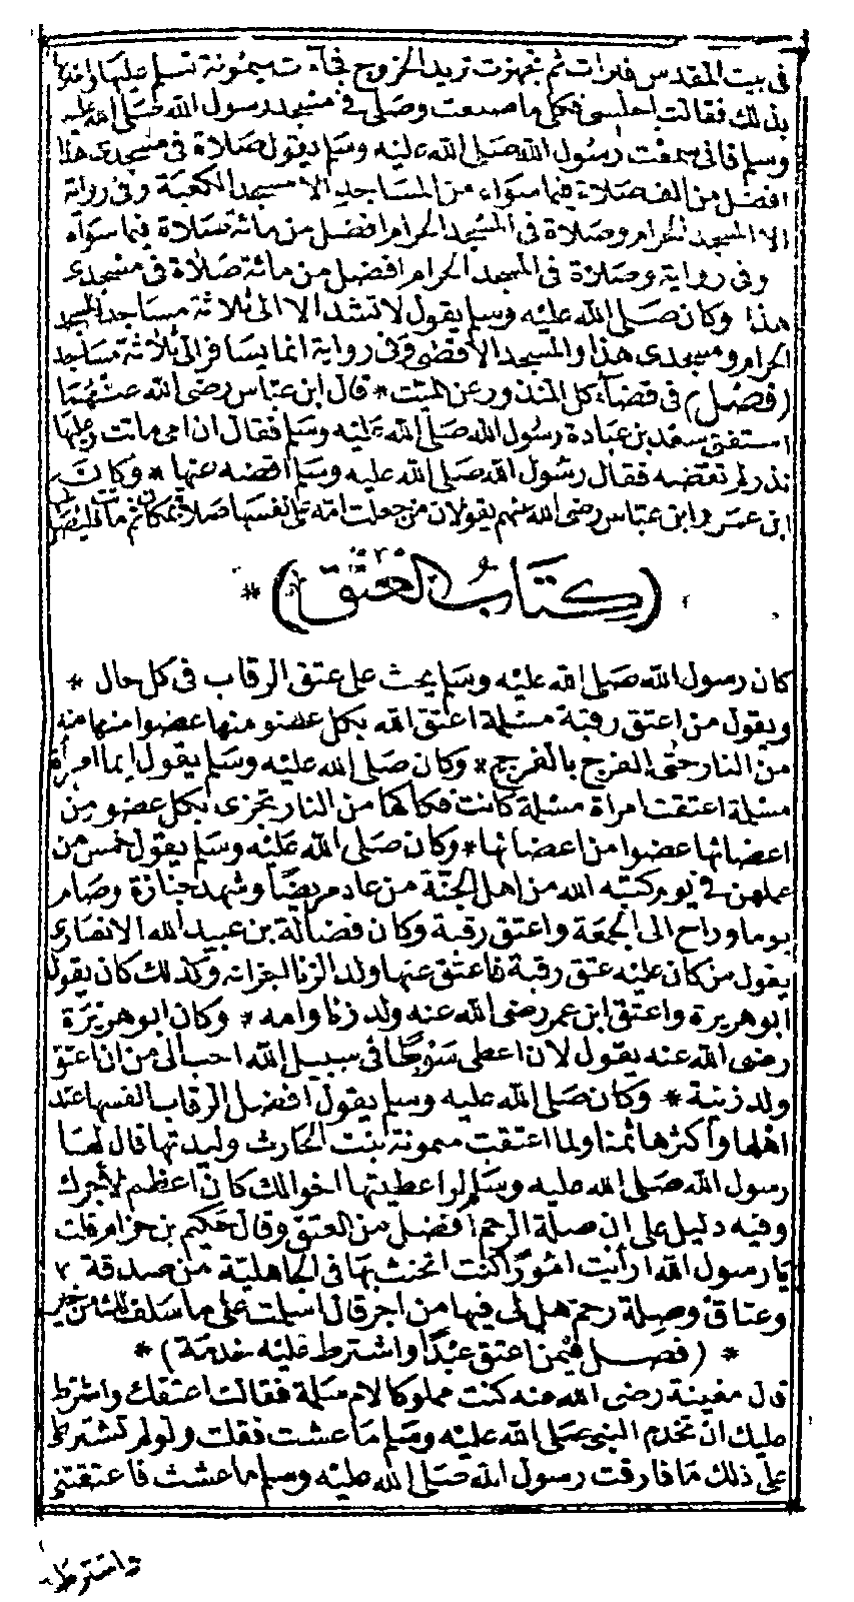 فى بيت المقدس فبرأت ثم تجهزت تريد الخروج فجاءت ميمونة تسلم عليها واخبرتها
بذلك فقالت اجلسى فكلى ما صنعت وصلى فى مسجد رسول الله صلى الله عليه
وسلم فانى سمعت رسول الله صلى الله عليه وسلم يقول صلاة فى مسجدى هذا
افضل من الف صلاة فيما سواه من المساجد الا مسجد الكعبة وفى رواية
الا المسجد الحرام وصلاة فى المسجد الحرام افضل من مائة صلاة فيما سواه
وفى رواية وصلاة فى المسجد الحرام افضل من مائة صلاة فى مسجدى
هذا وكان صلى الله عليه وسلم يقول لا تشد الا الى ثلاثة مساجد المسجد
الحرام ومسجدى هذا والمسجد الاقصى وفى رواية انما يسافر الى ثلاثة مساجد
(فصل) فى قضاء كل المنذور عن الميت * قال ابن عباس رضى الله عنهما
استفتى سعد بن عبادة رسول الله صلى الله عليه وسلم فقال ان امى ماتت وعليها
نذر لم تقضه فقال رسول الله صلى الله عليه وسلم اقضه عنها * وكان
ابن عمر وابن عباس رضى الله عنهم يقولان من جعلت امه على نفسها صلاة بمكان ثم ماتت فليصل
* (كتاب العتق)
كان رسول الله صلى الله عليه وسلم يحث على عتق الرقاب فى كل حال *
ويقول من اعتق رقبة مسلمة اعتق الله بكل عضو منها عضوا منها منه
من النار حتى الفرج بالفرج * وكان صلى الله عليه وسلم يقول ايما امرأة
مسلمة اعتقت امرأة مسلمة كانت فكاكها من النار تجزى بكل عضو من
اعضائها عضوا من اعضائها * وكان صلى الله عليه وسلم يقول خمس من
عملهن فى يوم كتبه الله من اهل الجنة من عاد مريضا وشهد جنازة وصام
يوما وراح الى الجمعة واعتق رقبة وكان فضالة بن عبيد الله الانصارى
يقول من كان عليه عتق رقبة فاعتق عنها ولد الزنا اجزاته وكذلك كان يقول
ابو هريرة واعتق ابن عمر رضى الله عنه ولد زنا وامه * وكان ابو هريرة
رضى الله عنه يقول لان اعطى سوطا فى سبيل الله احب الى من ان اعتق
ولد زنية * وكان صلى الله عليه وسلم يقول افضل الرقاب انفسها عند
اهلها واكثرها ثمنا ولما اعتقت ميمونة بنت الحارث وليدتها قال لها
رسول الله صلى الله عليه وسلم لو اعطيتها اخوالك كان اعظم لاجرك
وفيه دليل على ان صلة الرحم افضل من العتق وقال حكيم بن حزام قلت
يا رسول الله ارأيت امورا كنت اتحنث بها فى الجاهلية من صدقة
وعتاق وصلة رحم هل لى فيها من اجر قال اسلمت على ما سلف لك من خير
* (فصل فيمن اعتق عبدا واشترط عليه خدمة) *
قال سفينة رضى الله عنه كنت مملوكا لام سلمة فقالت اعتقك واشترط
عليك ان تخدم النبى صلى الله عليه وسلم ما عشت فقلت ولو لم تشترط
على ذلك ما فارقت رسول الله صلى الله عليه وسلم ما عشت فاعتقتنى
واشترطت